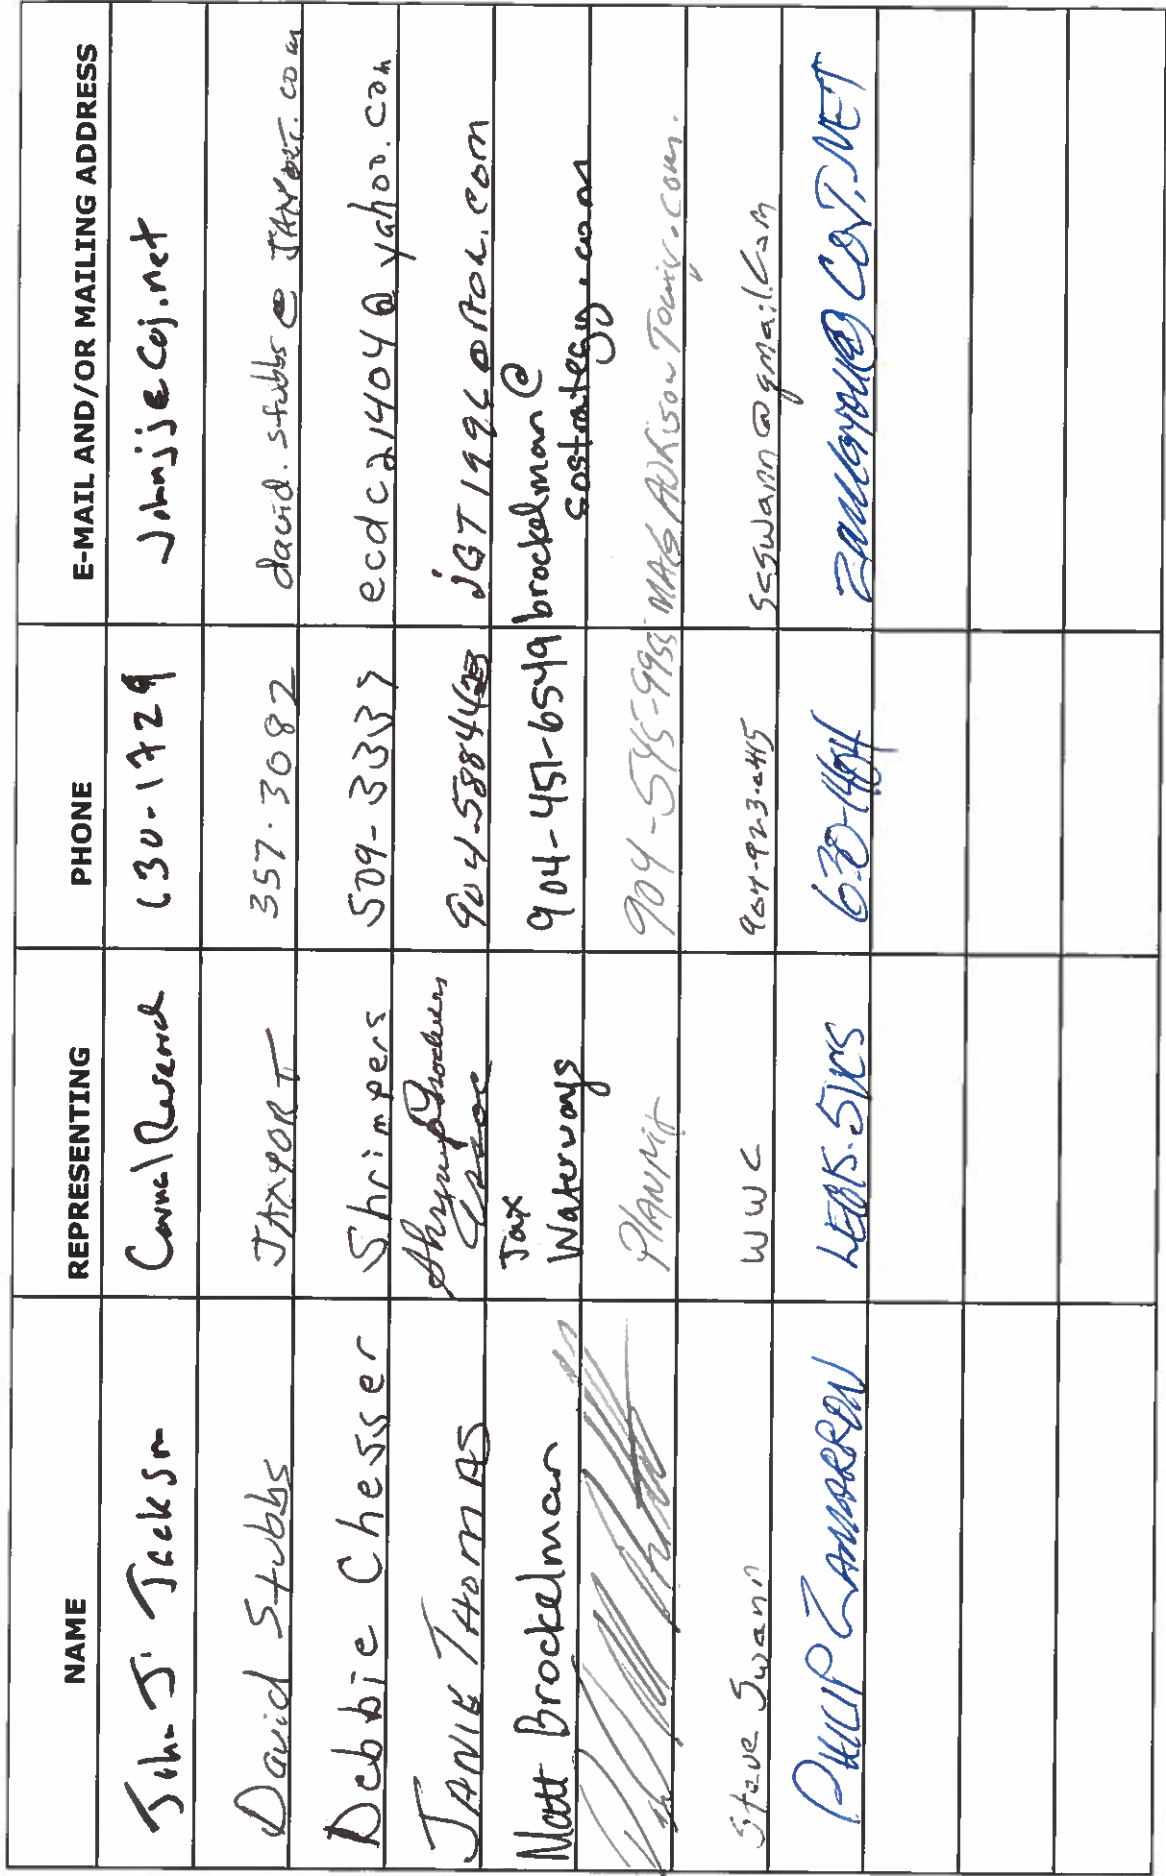 NAME REPRESENTING PHONE E-MAIL AND/OR MAILING ADDRESS
John J. Jackson Council Research 630-1729 Johnjj@coj.net
David Stubbs JAXPORT 357.3082 david.stubbs@JAXPORT.com
Debbie Chesser Shrimpers 509-3337 ecdc21404@yahoo.com
JANIE THOMAS Shrimp Producers 904-5884423 jGT1996@AOL.com
Matt Brockelman Jax Waterways 904-451-6549 brockelman@
sostrategy.com
904-545-9955
Steve Swann WWC 904-923-2415 scswann@gmail.com
PHILIP ZAMARRON LEGIS.SVCS 630-1404 @COJ.NET